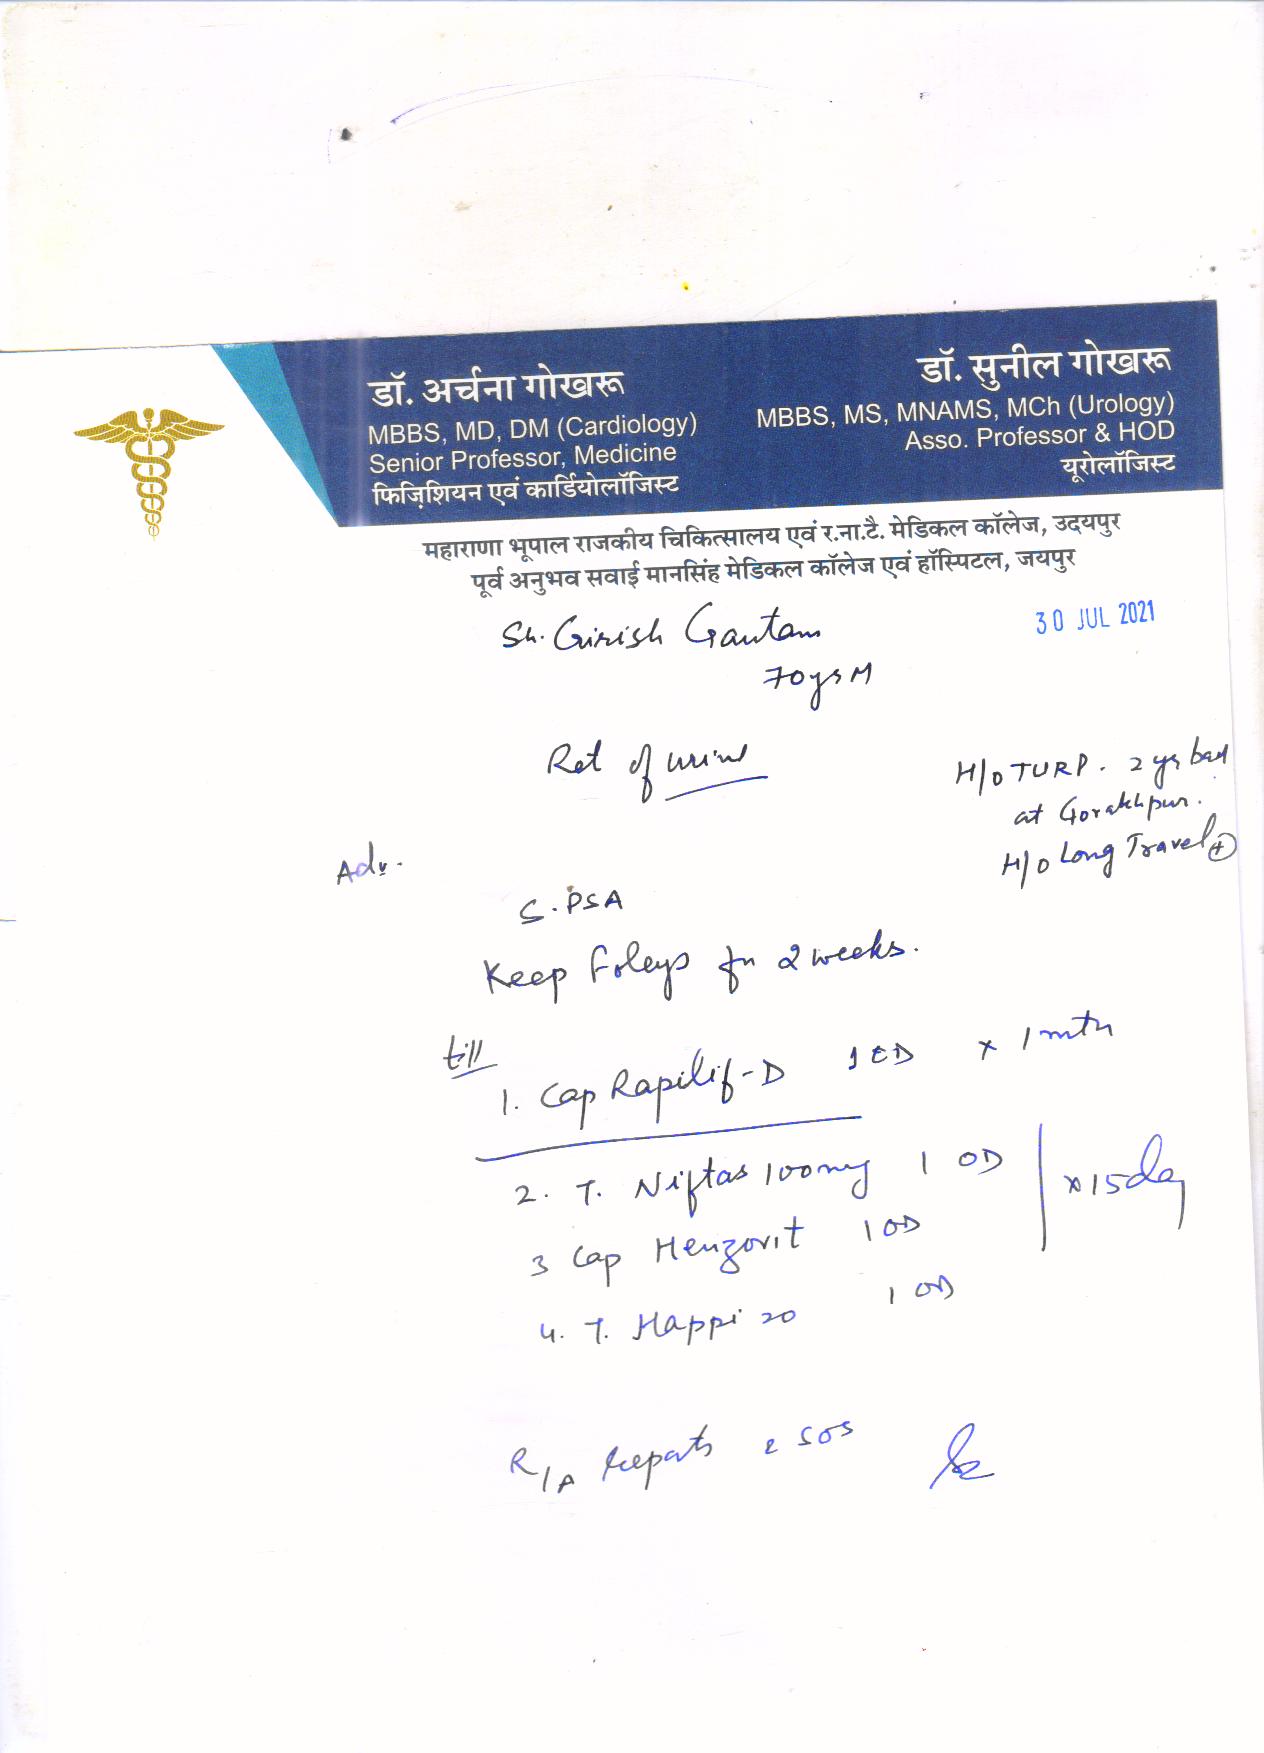 डॉ. अर्चना गोखरू
MBBS, MD, DM (Cardiology)
Senior Professor, Medicine
फिज़िशियन एवं कार्डियोलॉजिस्ट
डॉ. सुनील गोखरू
MBBS, MS, MNAMS, MCh (Urology)
Asso. Professor & HOD
यूरोलॉजिस्ट
महाराणा भूपाल राजकीय चिकित्सालय एवं र.ना.टै. मेडिकल कॉलेज, उदयपुर
पूर्व अनुभव सवाई मानसिंह मेडिकल कॉलेज एवं हॉस्पिटल, जयपुर
30 JUL 2021
Sh. Girish Gautam
70ys M
Ret of urine
H/o TURP. 2 yrs back
at Gorakhpur.
H/o Long Travel +
Adv.
S. PSA
Keep Foleys for 2 weeks.
till
1. Cap Rapilif-D 1 OD x 1 mth
2. T. Niftas 100mg 1 OD
x 15 day
3 Cap Henzovit 1 OD
4. T. Happi 20 1 OD
R/A reports & SOS